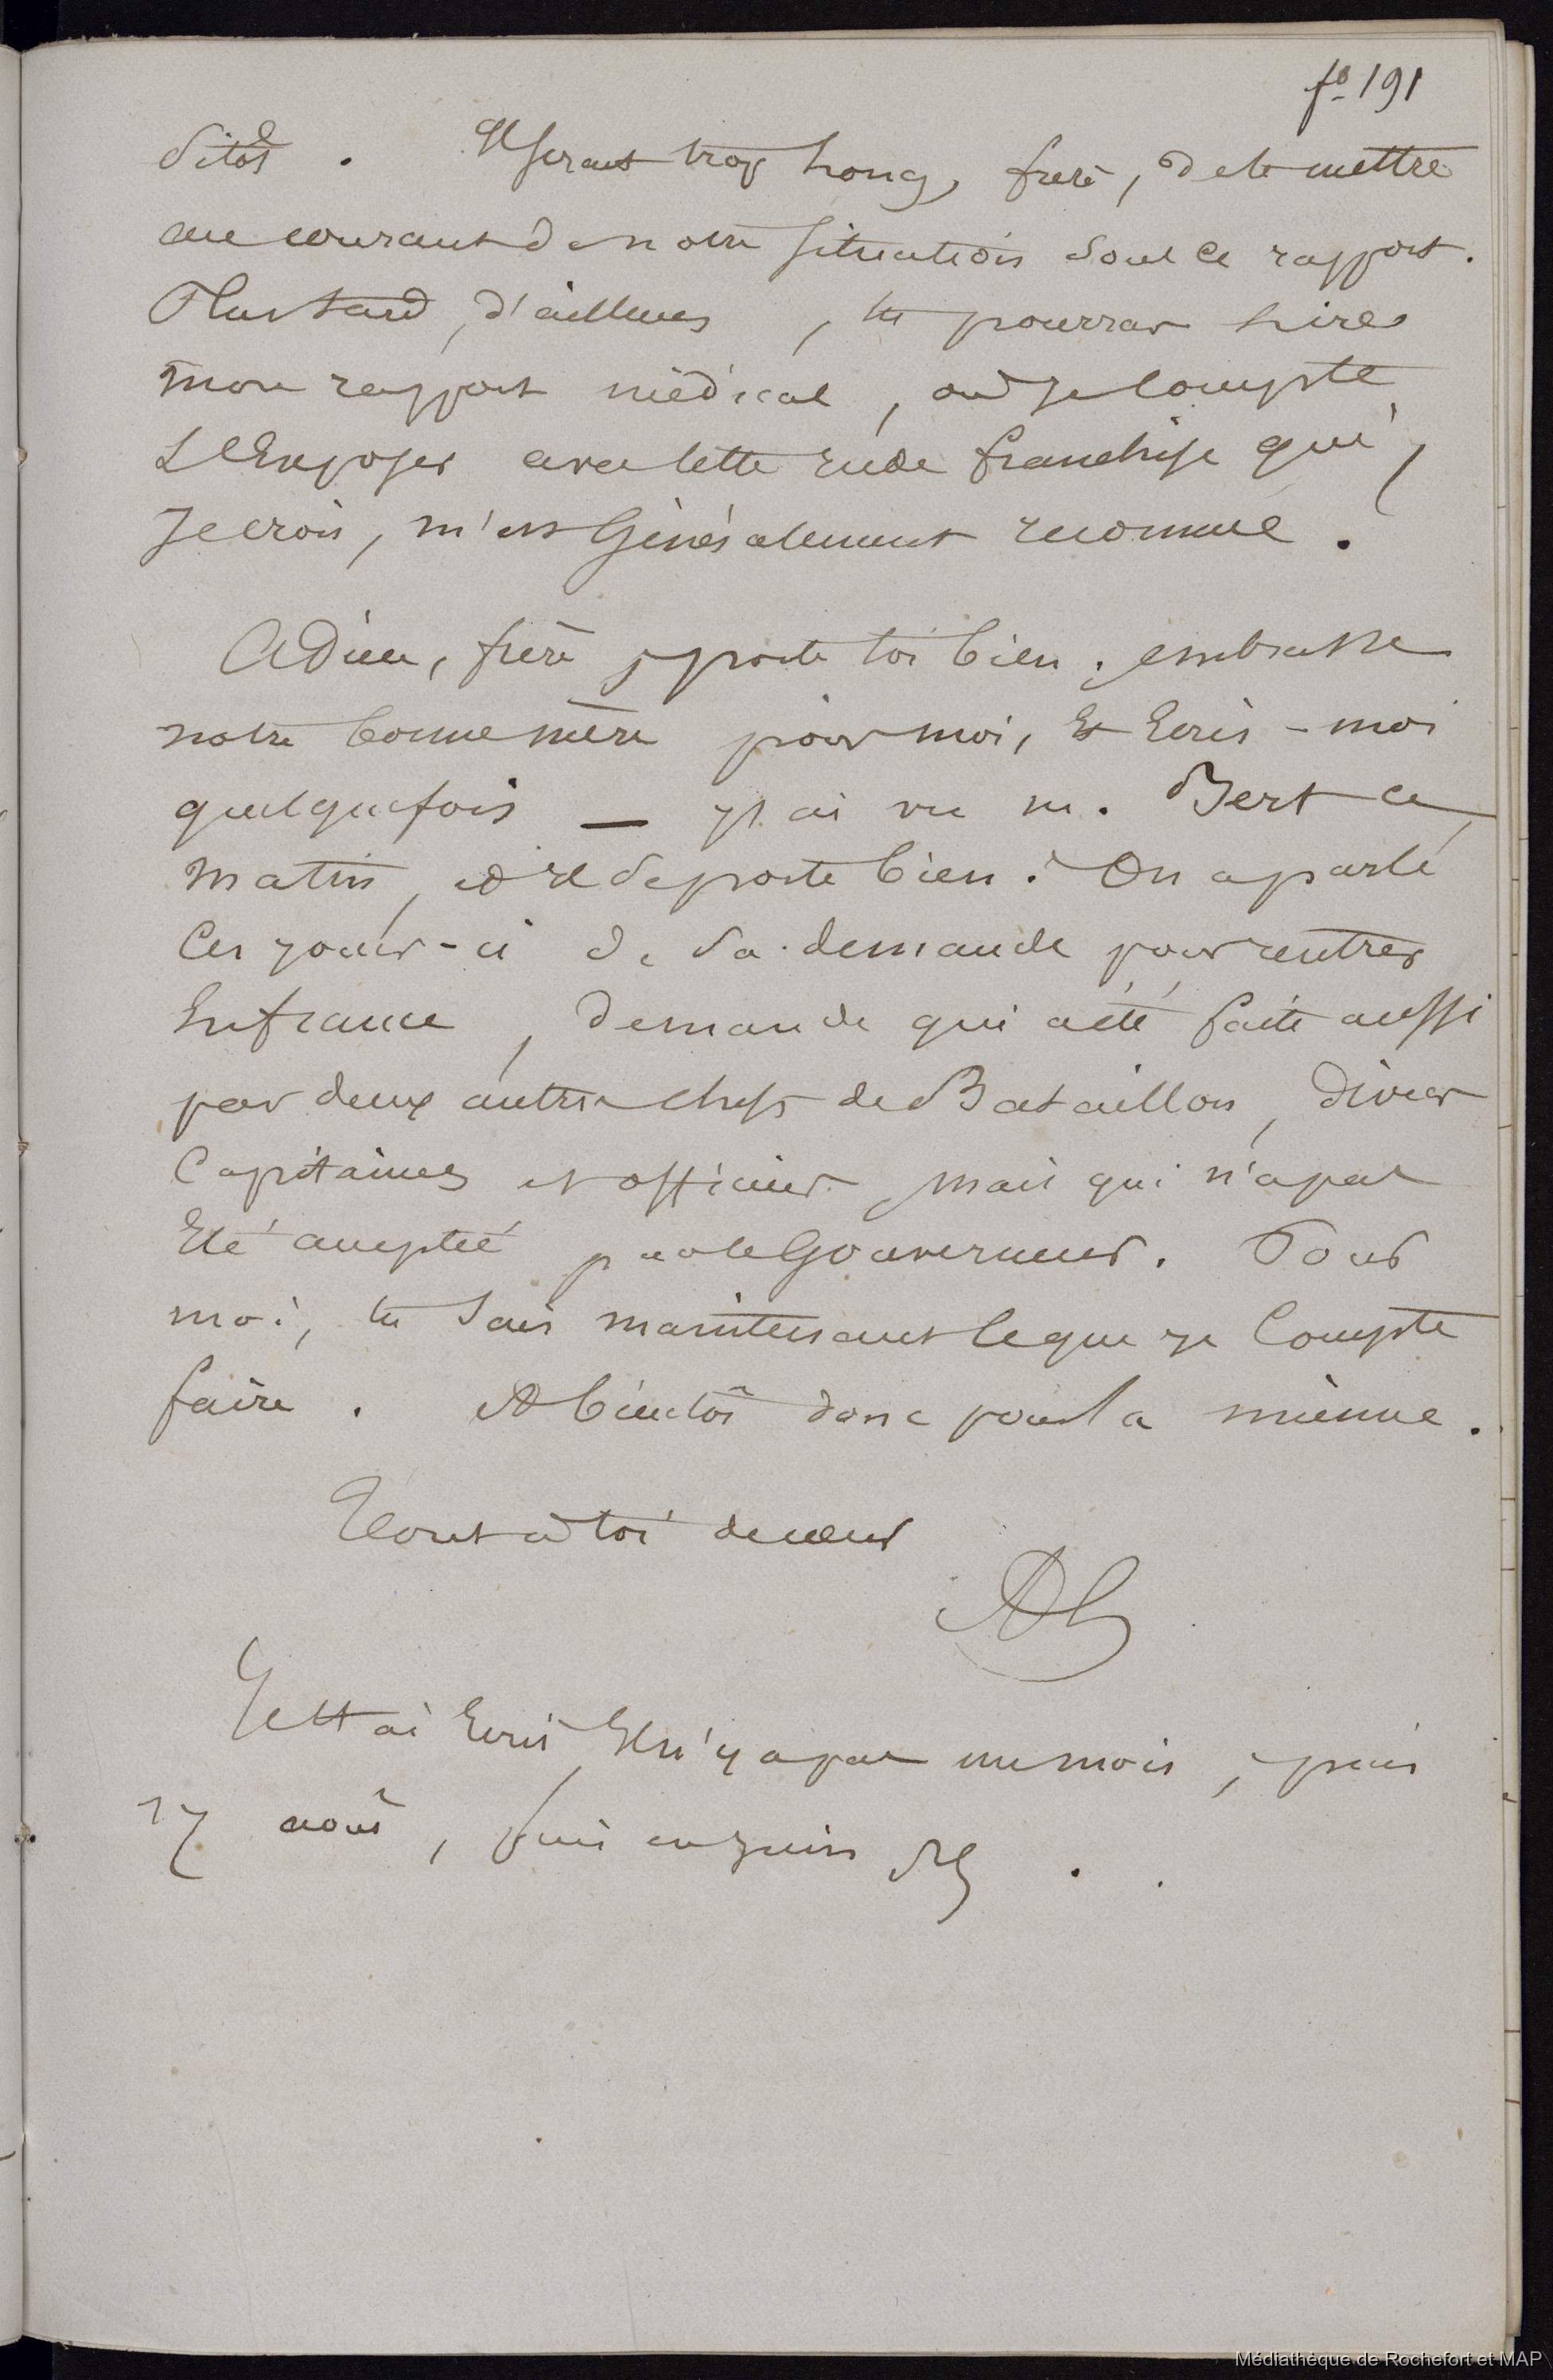 fo 191
sitôt. Il serait trop long, frère, de te mettre
au courant de notre situation sous ce rapport.
Plus tard, d'ailleurs, tu pourras lire
mon rapport médical, où je compte
l'Exposer avec cette rude franchise qui,
Je crois, m'est Généralement reconnue.
Adieu, frère, porte toi bien, embrasse
notre bonne mère pour moi, Et Ecris-moi
quelquefois — J'ai vu m. Bert ce
matin, et il se porte bien. On a parlé
Ces jours-ci de sa demande pour rentrer
En france, demande qui a été faite aussi
par deux autres chefs de Bataillon, divers
Capitaines et officiers, mais qui n'a pas
Eté acceptée par le Gouverneur. Pour
moi, tu sais maintenant ce que je Compte
faire. A bientôt donc pour la mienne.
Tout à toi de cœur
Je t'ai Ecrit, Il n'y a pas un mois, puis
17 août, puis en juin
Médiathèque de Rochefort et MAP